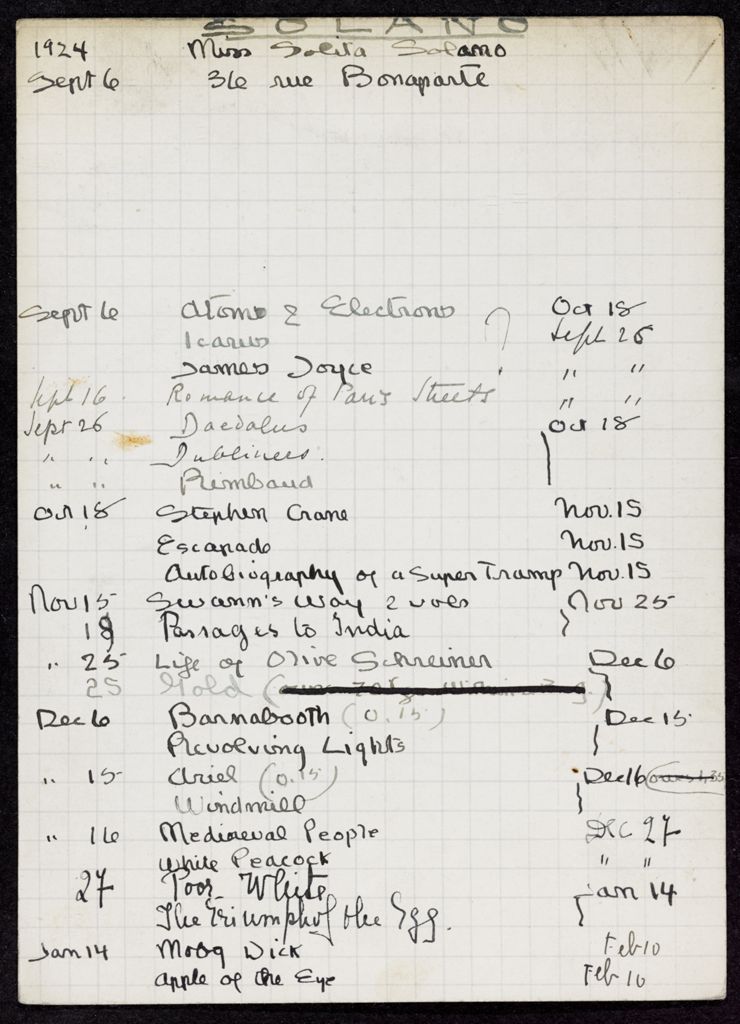 SOLANO
1924 Miss Solita Solano
Sept 6 36 rue Bonaparte
Sept 6 Atoms & Electrons Oct 18
Icarus Sept 26
James Joyce " "
Sept 16 Romance of Paris Streets " "
Sept 26 Daedalus Oct 18
" " Dubliners.
" " Rimbaud
Oct 18 Stephen Crane Nov. 15
Escapade Nov. 15
Autobiography of a Super Tramp Nov. 15
Nov 15 Swann's Way 2 vols Nov 25
18 Passages to India
" 25 Life of Olive Schreiner Dec 6
25 Gold
Dec 6 Barnabooth (0.15) Dec 15
Revolving Lights
" 15 Ariel (0.15) Dec 16
Windmill
" 16 Mediaeval People Dec 27
White Peacock " "
27 Poor White Jan 14
The Triumph of the Egg.
Jan 14 Moby Dick Feb 10
Apple of the Eye Feb 10